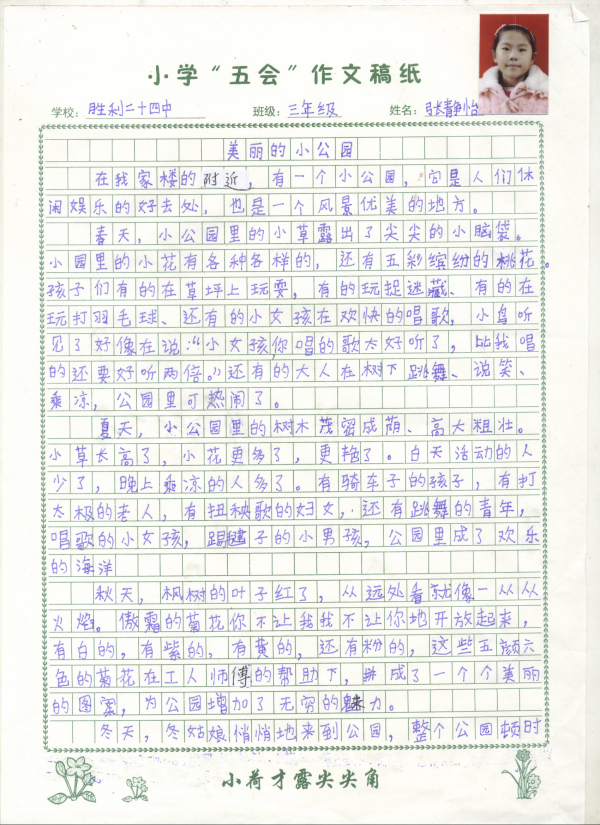 小学“五会”作文稿纸
学校：胜利二十四中 班级：三年级 姓名：张静怡
美丽的小公园
在我家楼的附近，有一个小公园，它是人们休
闲娱乐的好去处，也是一个风景优美的地方。
春天，小公园里的小草露出了尖尖的小脑袋。
小园里的小花有各种各样的，还有五彩缤纷的桃花。
孩子们有的在草坪上玩耍，有的玩捉迷藏、有的在
玩打羽毛球、还有的小女孩在欢快的唱歌，小鸟听
见了好像在说：“小女孩，你唱的歌太好听了，比我唱
的还要好听两倍。”还有的大人在树下跳舞、说笑、
乘凉，公园里可热闹了。
夏天，小公园里的树木茂密成荫、高大粗壮。
小草长高了，小花更多了，更艳了。白天活动的人
少了，晚上乘凉的人多了。有骑车子的孩子，有打
太极的老人，有扭秧歌的妇女，还有跳舞的青年，
唱歌的小女孩，踢毽子的小男孩，公园里成了欢乐
的海洋
秋天，枫树的叶子红了，从远处看就像一从从
火焰。傲霜的菊花你不让我我不让你地开放起来，
有白的，有紫的，有黄的，还有粉的，这些五颜六
色的菊花在工人师傅的帮助下，拼成了一个个美丽
的图案，为公园增加了无穷的魅力。
冬天，冬姑娘悄悄地来到公园，整个公园顿时
小荷才露尖尖角